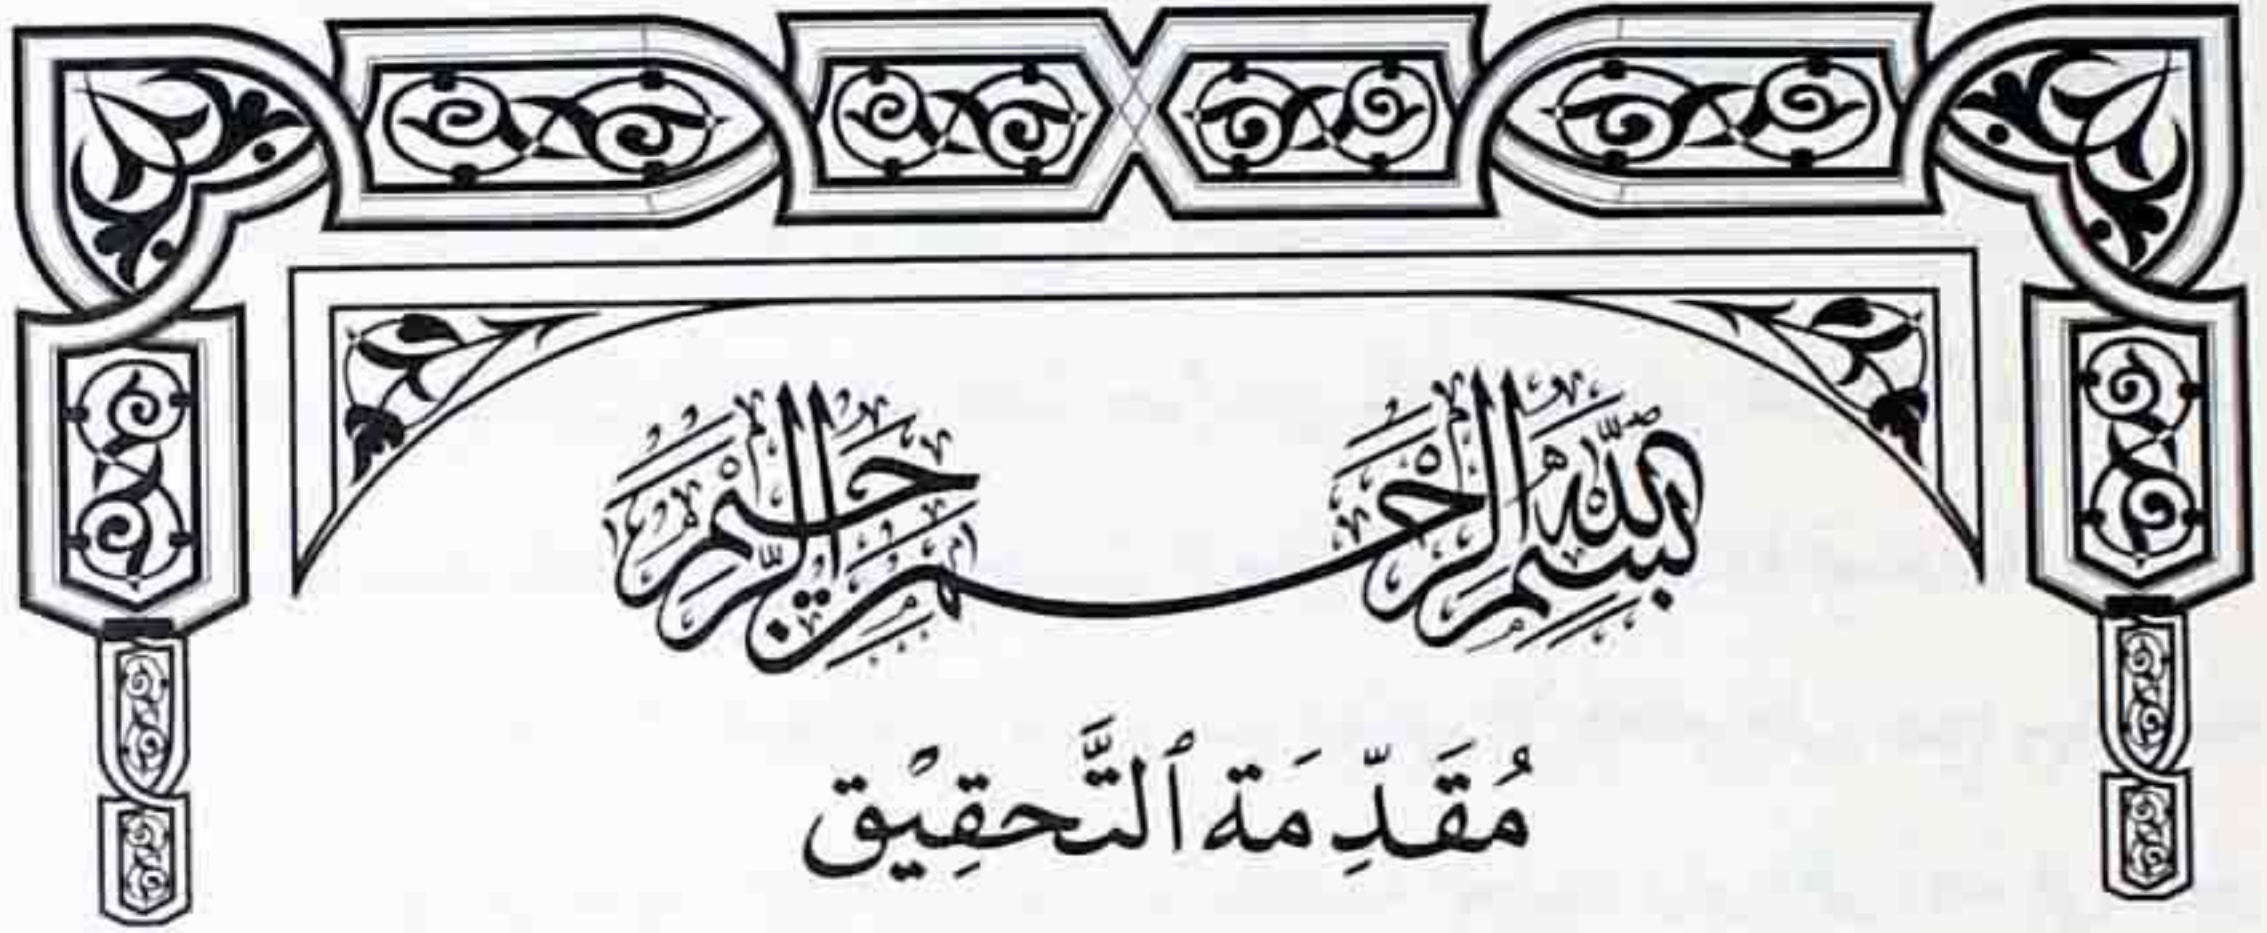 بِسْمِ اللَّهِ الرَّحْمَنِ الرَّحِيمِ
مُقَدِّمَة ٱلتَّحقِيْق